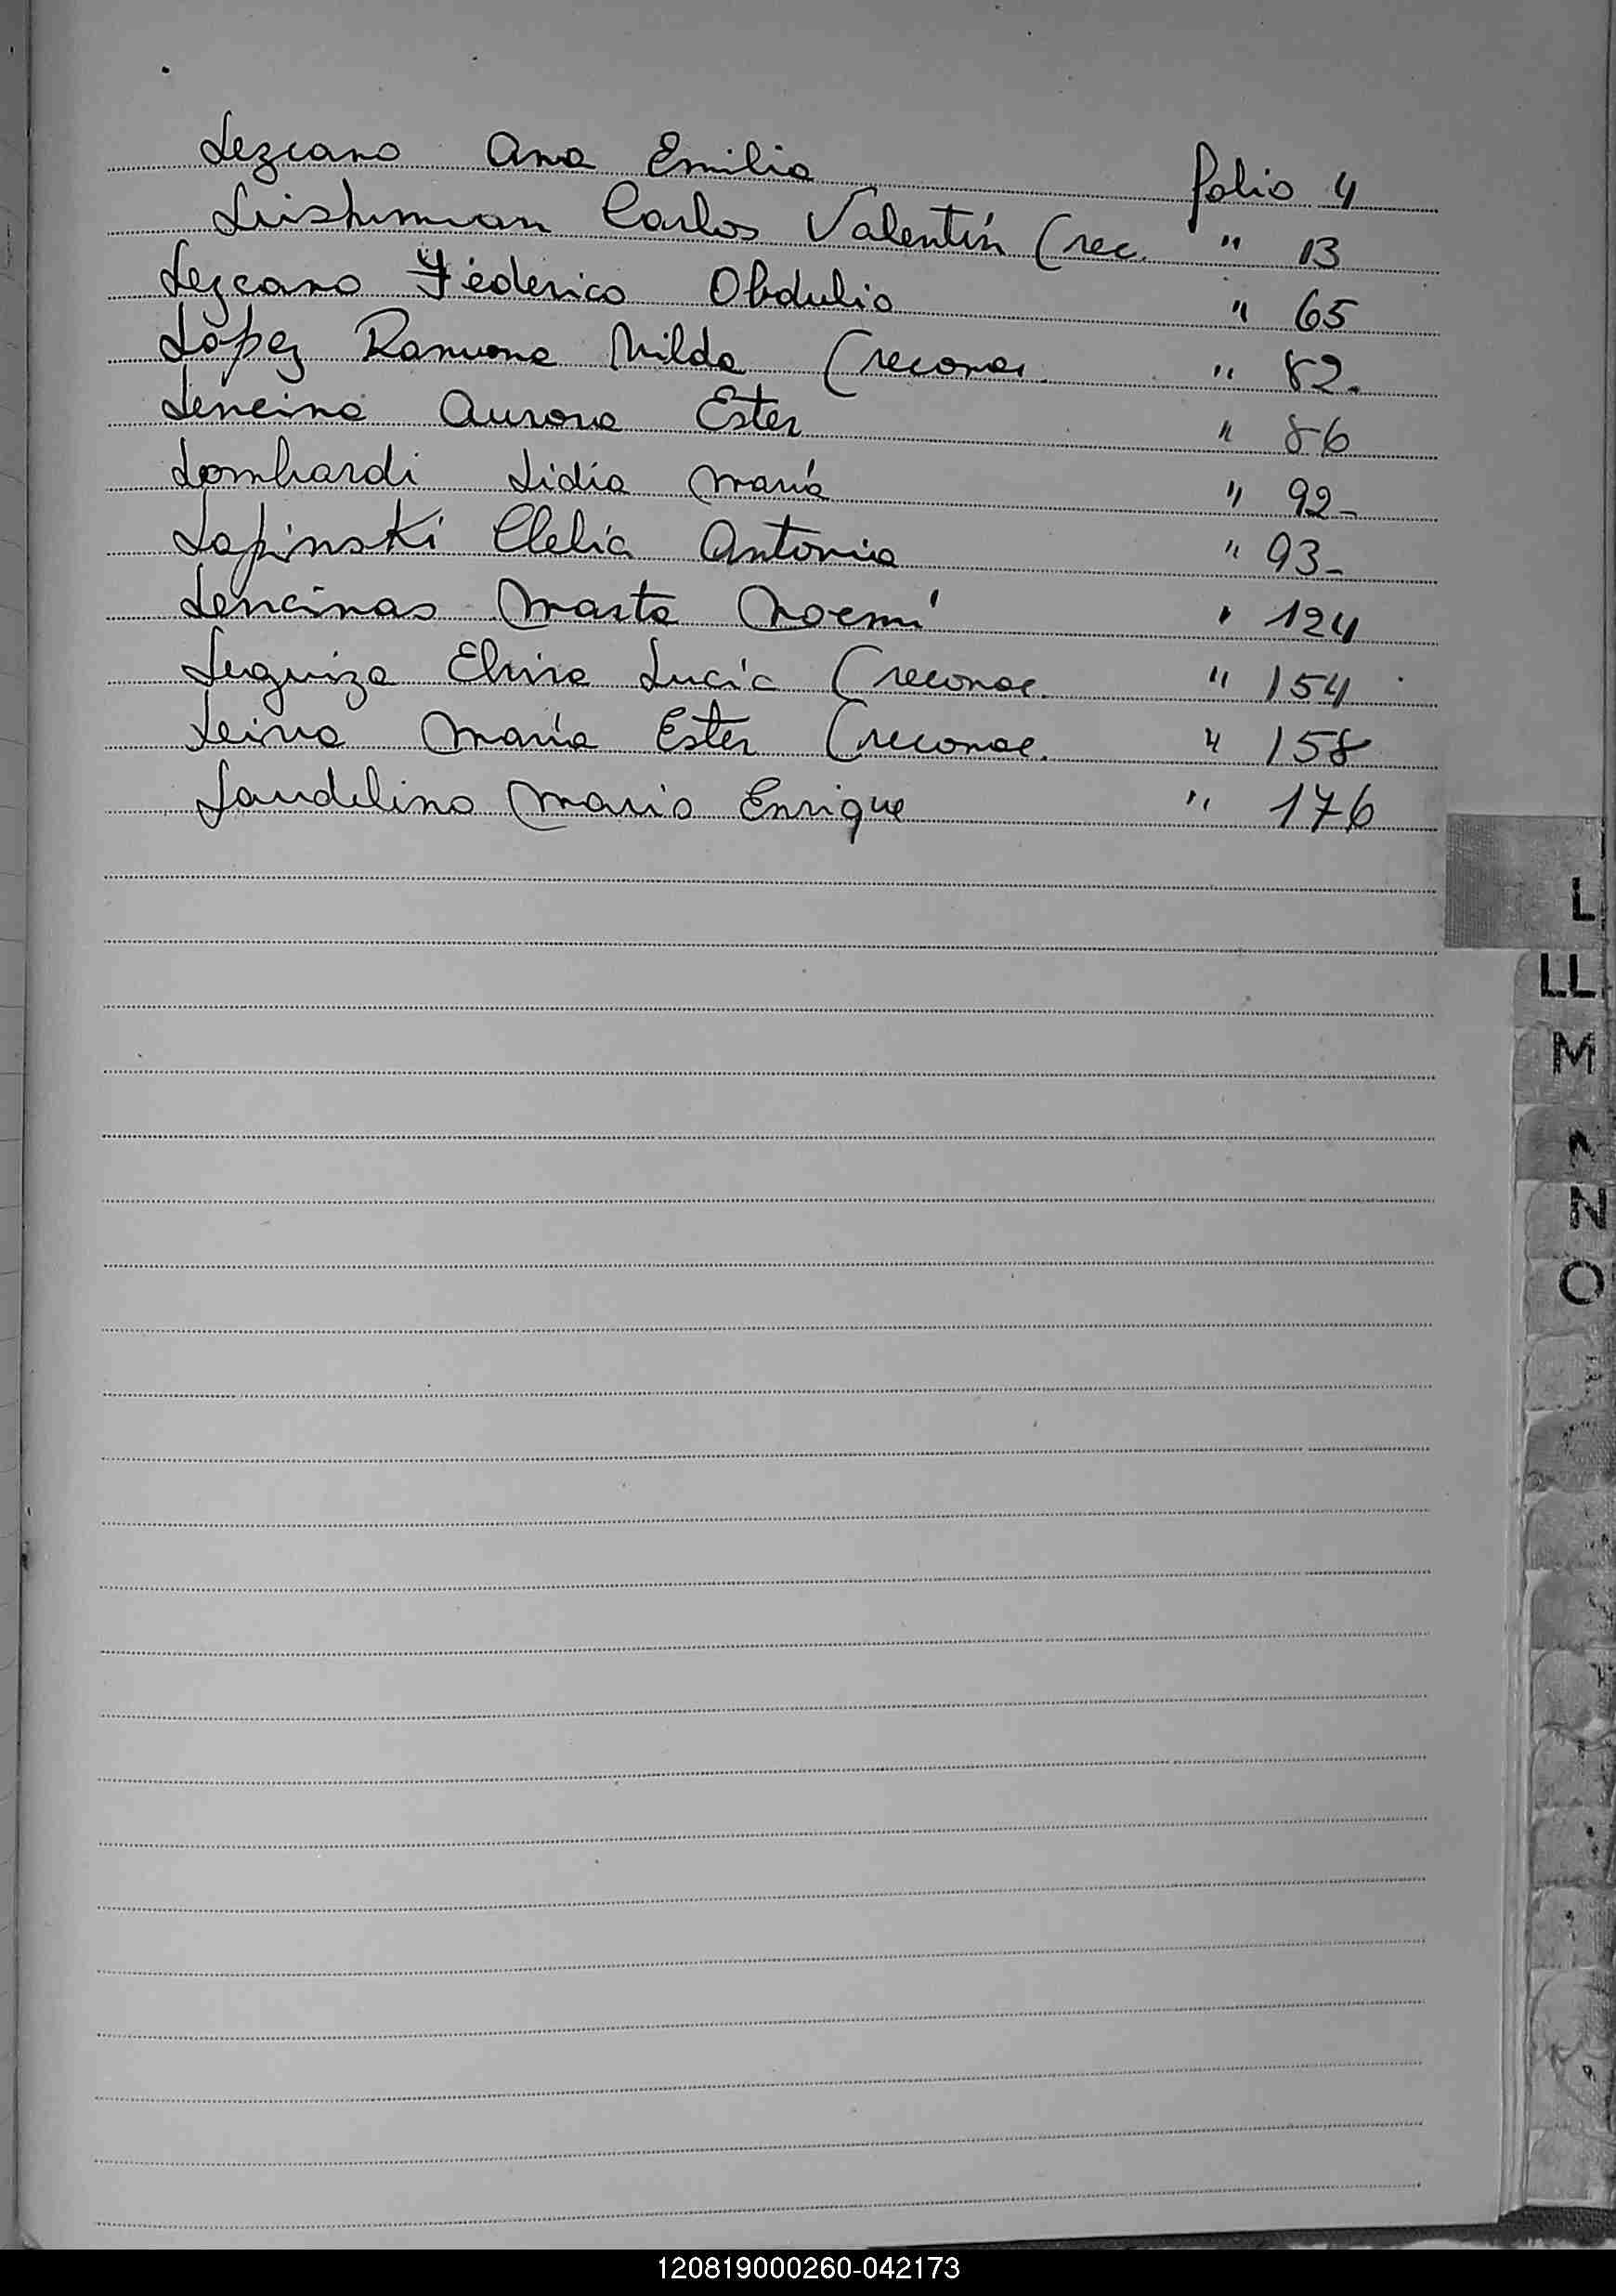 Lezcano Ana Emilia folio 4
Carlos Valentín (rec. " 13
Lezcano Féderico Obdulio " 65
López Ramona Nilda (reconoc. " 82.
Lencina Aurora Ester " 86
Lombardi Lidia María " 92-
Lapinski Clelia Antonia " 93-
Lencinas Marta Noemí " 124
Leguiza Elvira Lucía (reconoc. " 154
Leiva María Ester (reconoc. " 158
Landelino Mario Enrique " 176
L
LL
M
N
O
120819000260-042173